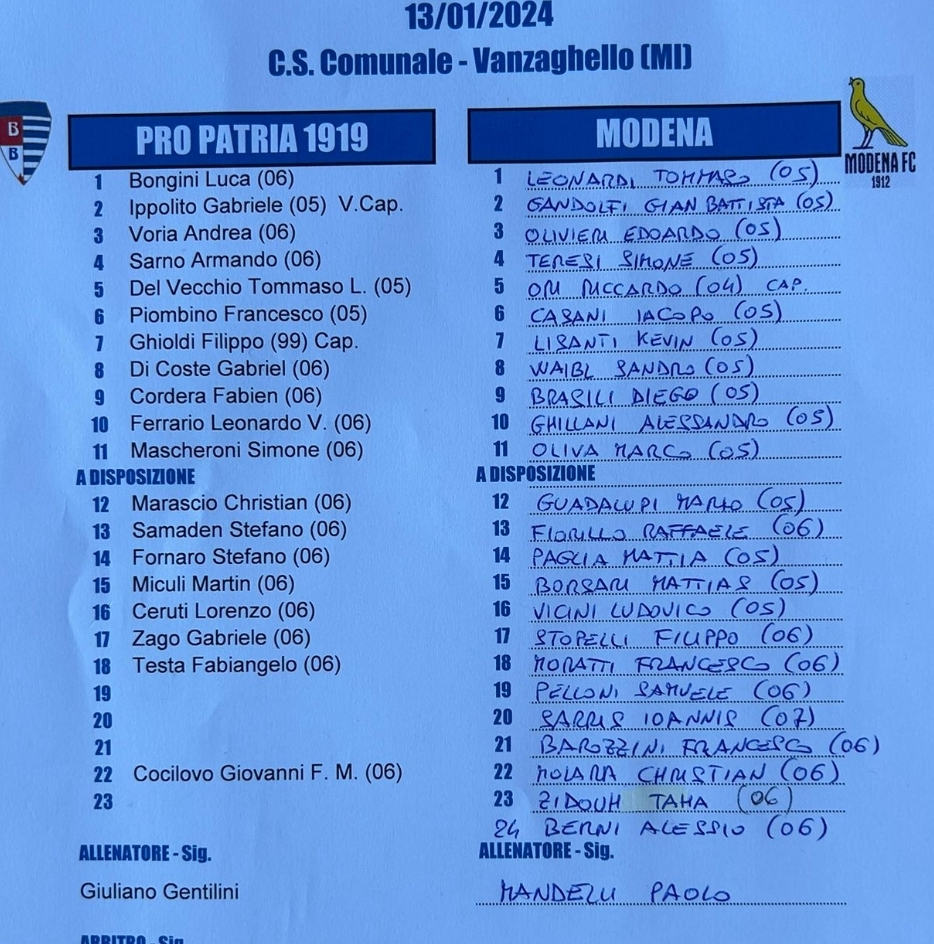 13/01/2024
C.S. Comunale - Vanzaghello (MI)
B
B
PRO PATRIA 1919
1 Bongini Luca (06)
2 Ippolito Gabriele (05) V.Cap.
3 Voria Andrea (06)
4 Sarno Armando (06)
5 Del Vecchio Tommaso L. (05)
6 Piombino Francesco (05)
7 Ghioldi Filippo (99) Cap.
8 Di Coste Gabriel (06)
9 Cordera Fabien (06)
10 Ferrario Leonardo V. (06)
11 Mascheroni Simone (06)
A DISPOSIZIONE
12 Marascio Christian (06)
13 Samaden Stefano (06)
14 Fornaro Stefano (06)
15 Miculi Martin (06)
16 Ceruti Lorenzo (06)
17 Zago Gabriele (06)
18 Testa Fabiangelo (06)
19
20
21
22 Cocilovo Giovanni F. M. (06)
23
ALLENATORE - Sig.
Giuliano Gentilini
ARBITRO - Sig.
MODENA
MODENA FC
1912
1 LEONARDI TOMMASO (05)
2 GANDOLFI GIAN BATTISTA (05)
3 OLIVIERI EDOARDO (05)
4 TERESI SIMONE (05)
5 ORI RICCARDO (04) CAP.
6 CABANI IACOPO (05)
7 LISANTI KEVIN (05)
8 WAIBL SANDRO (05)
9 BRASILI DIEGO (05)
10 GHILLANI ALESSANDRO (05)
11 OLIVA MARCO (05)
A DISPOSIZIONE
12 GUADALUPI MARIO (05)
13 FIORILLO RAFFAELE (06)
14 PAGLIA MATTIA (05)
15 BORSARI MATTIAS (05)
16 VICINI LUDOVICO (05)
17 STOPELLI FILIPPO (06)
18 MORATTI FRANCESCO (06)
19 PELLONI SAMUELE (06)
20 SARRIS IOANNIS (07)
21 BAROZZINI FRANCESCO (06)
22 MOLARA CHRISTIAN (06)
23 ZIDOUH TAHA (06)
24 BERNI ALESSIO (06)
ALLENATORE - Sig.
MANDELLI PAOLO